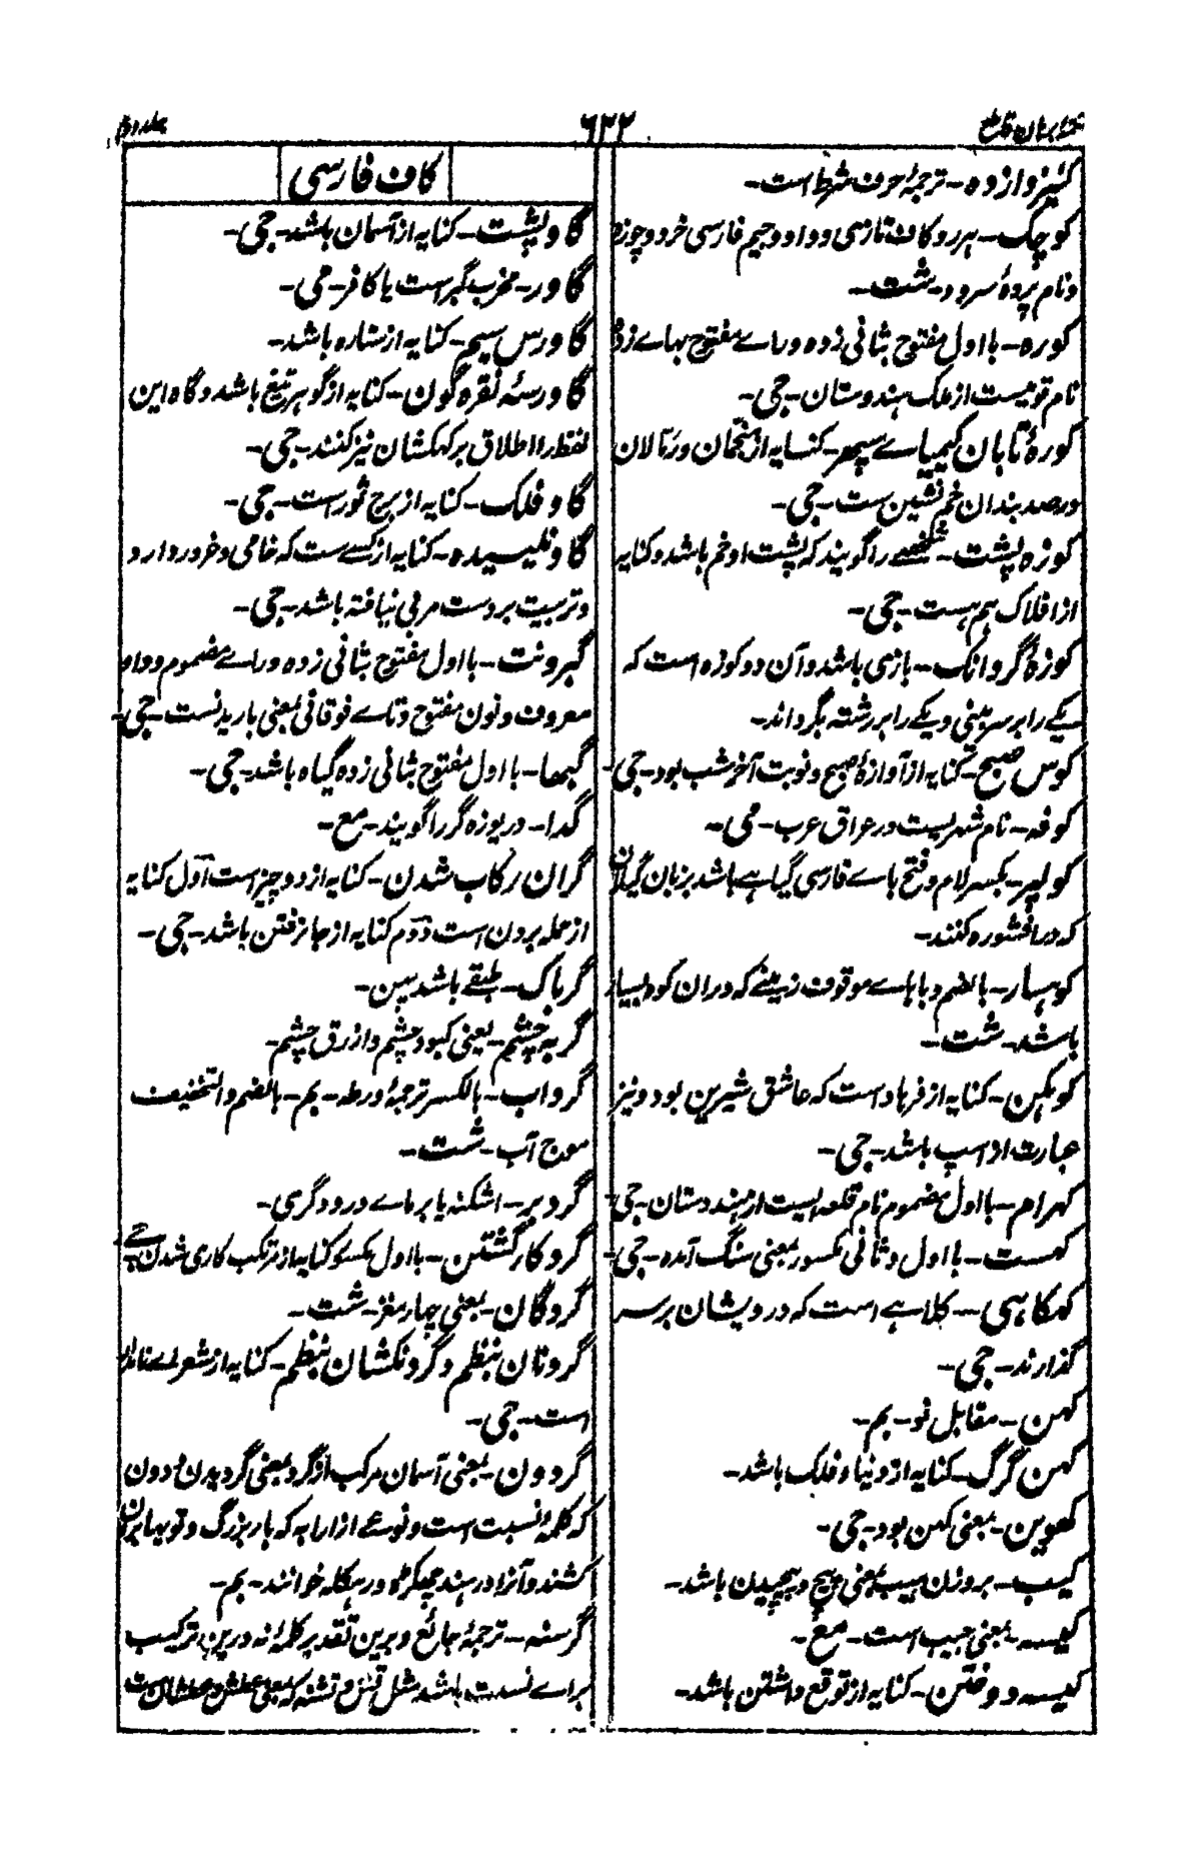 تتمهٔ برهان قاطع
۶۲۲
جلد دوم
کنیز وازده - ترجمهٔ حرف شرط است -
کوچک - هر دو کاف تازی و واو و جیم فارسی خرد و چوزه
و نام پردهٔ سرود - شت -
کوره - با اول مفتوح بثانی زده و راے مفتوح بہاے زده
نام قومیست از ملک ہندوستان - جی -
کورهٔ تابان کیمیاے سپهر - کنایه از منجمان و رمّالان
و رصد بندان خم نشین ست - جی -
کوزه پشت - شخصے را گویند که پشت او خم باشد و کنایه
از افلاک ہم ہست - جی -
کوزه گردانک - بازی باشد و آن دو کوزه است که
یکے را بر سر بینی و یکے را بر رشته بگرداند -
کوس صبح - کنایه از آوازهٔ صبح و نوبت آخر شب بود - جی -
کوفه - نام شہریست در عراق عرب - می -
کولپر - بکسر لام و فتح باے فارسی گیاہے باشد بزبان گیلان
که در افشوره کنند -
کوہسار - بالضم و با ہاے موقوف زمینے که دران کوه بسیار
باشد - شت -
کوہکن - کنایه از فرہاد است که عاشق شیرین بود و نیز
عبارت از اسپ باشد - جی -
کہرام - با اول مضموم نام قلعه ایست از ہندوستان - جی -
کہست - با اول و ثانی مکسور بمعنی سنگ آمده - جی -
کہکاہی - کلاہے است که درویشان بر سر
گذارند - جی -
کہن - مقابل نو - بم -
کہن گرگ - کنایه از دنیا و فلک باشد -
کہوین - بمعنی کہن بود - جی -
کیب - بروزن سیب بمعنی پیچ و پیچیدن باشد -
کیسه - بمعنی جیب است - مع -
کیسه دوختن - کنایه از توقع داشتن باشد -
کاف فارسی
گاو پشت - کنایه از آسمان باشد - جی -
گاور - مخرب گبر است یا کافر - می -
گاورس سیم - کنایه از ستاره باشد -
گاورسهٔ نقره گون - کنایه از گوہر تیغ باشد و گاه این
لفظ را اطلاق بر کہکشان نیز کنند - جی -
گاو فلک - کنایه از برج ثور است - جی -
گاو نلیسیده - کنایه از کسے ست که خامی و غرور دارد
و تربیت بر دست مربی نیافته باشد - جی -
گبرونت - با اول مفتوح بثانی زده و راے مضموم و واو
معروف و نون مفتوح و تاے فوقانی بمعنی باریدنست - جی -
گبھا - با اول مفتوح بثانی زده گیاه باشد - جی -
گدا - دریوزه گر را گویند - مع -
گران رکاب شدن - کنایه از دو چیز است اوّل کنایه
از حمله بردن است دوم کنایه از جا نرفتن باشد - جی -
گرباک - طبقے باشد پہن -
گربه چشم - یعنی کبود چشم و ازرق چشم -
گرداب - بالکسر ترجمهٔ ورطه - بم - بالضم و التخفیف
موج آب - شت -
گردبر - اشکنه یا برماے درودگری -
گرد کار گشتن - با اول مکسور کنایه از مرتکب کاری شدن - جے
گردگان - بمعنی چہار مغز - شت -
گردنان بنظم و گردنکشان بنظم - کنایه از شعراے نامدار
است - جی -
گردون - بمعنی آسمان مرکب از گرد بمعنی گردیدن و دون
که کلمهٔ نسبت است و نوعے از ارابه که بار بزرگ و توپہا بران
کشند و آنرا در ہند چھکڑه و در بنگاله خوانند - بم -
گرسنه - ترجمهٔ جائع و برین تقدیر کلمهٔ نه درین ترکیب
براے نسبت باشد مثل و تشنه که بمعنی عطش و عطشان ست